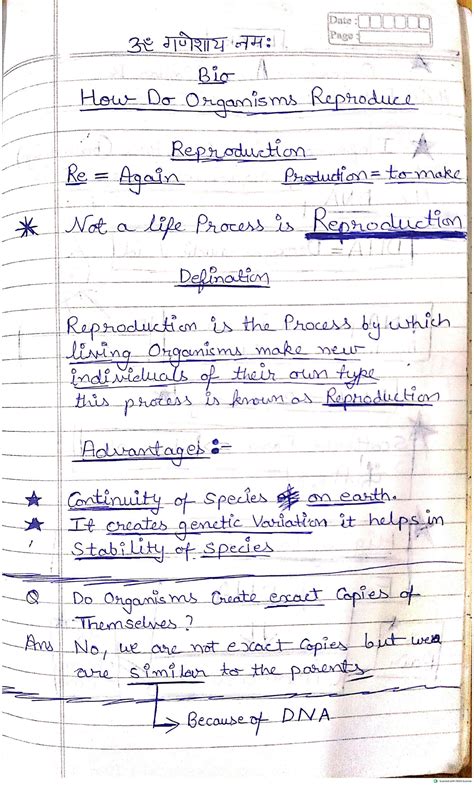 Date :
Page :
ॐ गणेशाय नमः
Bio
How Do Organisms Reproduce
Reproduction
Re = Again Production = to make
* Not a life Process is Reproduction
Defination
Reproduction is the Process by which
living Organisms make new
individuals of their own type
this process is known as Reproduction
Advantages :-
★ Continuity of species on earth.
★ It creates genetic Variation it helps in
Stability of Species
Q Do Organisms Create exact Copies of
Themselves ?
Ans No, we are not exact Copies but we
are similar to the parents
↳ Because of DNA